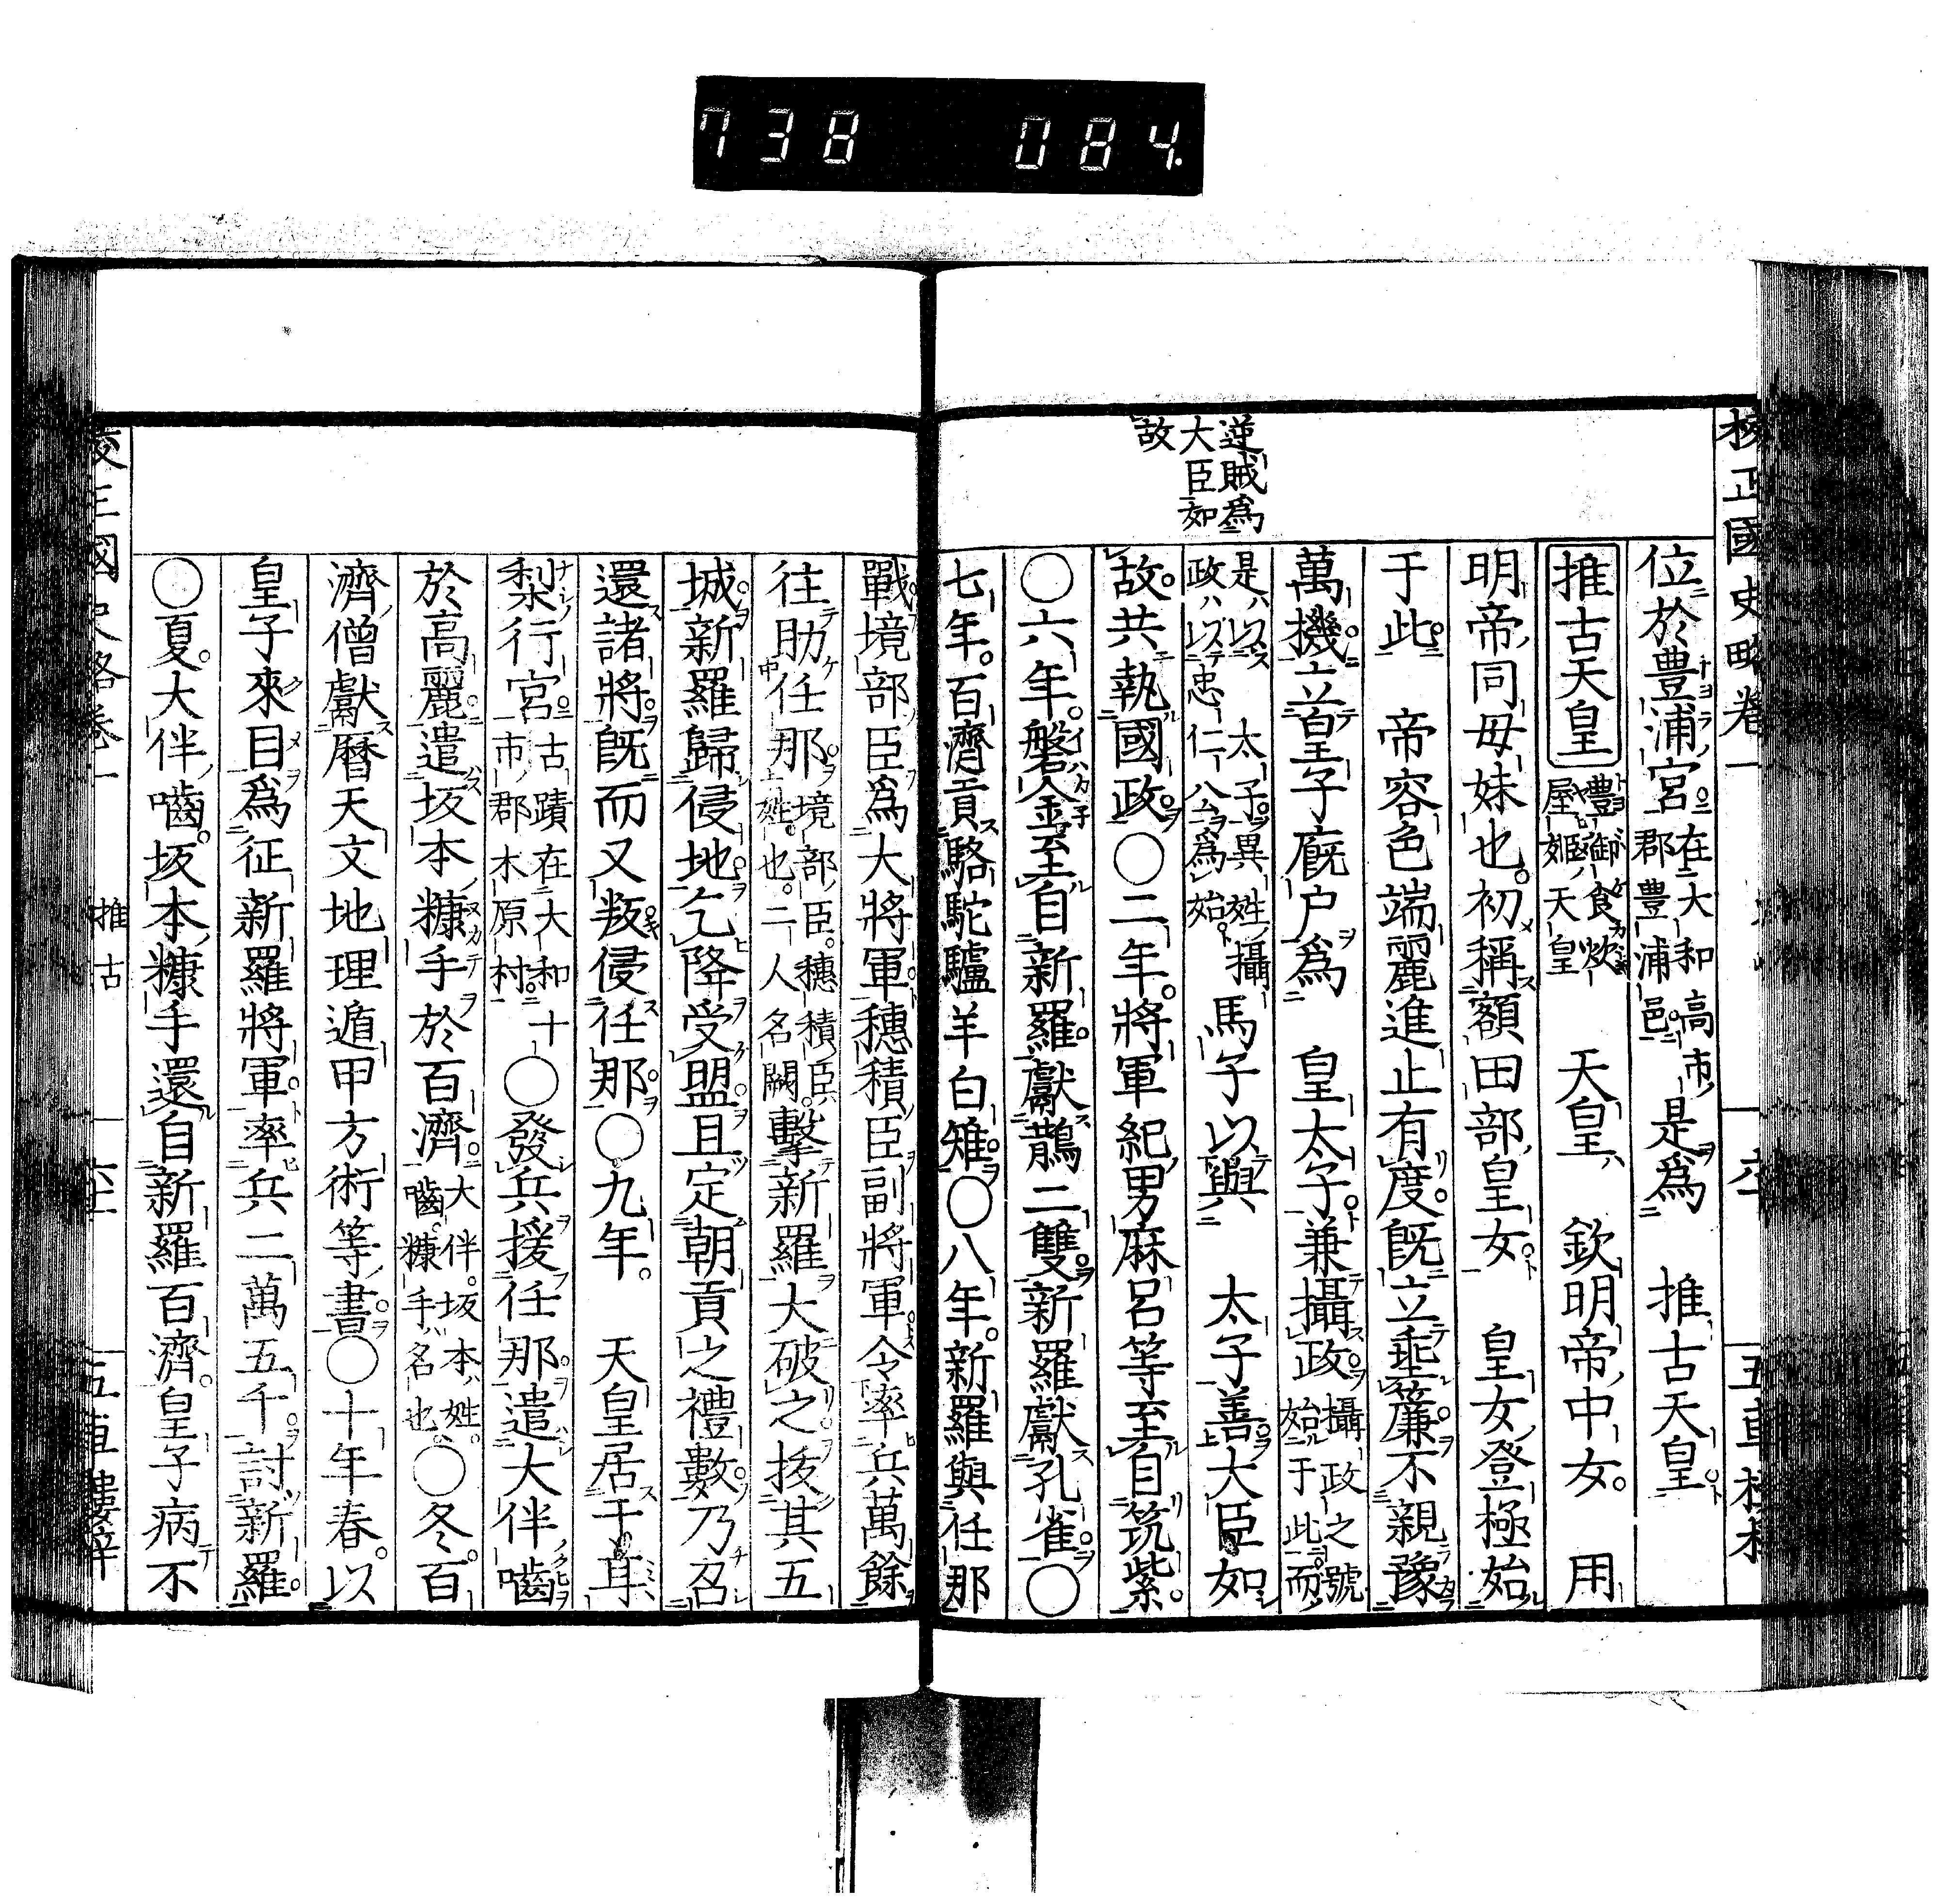 738 084.
校正國史略卷一 六十 五車樓梓
逆賊爲
大臣如
故
位於豊浦宮在大和高市郡豊浦邑是爲 推古天皇
推古天皇豊御食炊屋姫天皇 天皇 欽明帝中女 用
明帝同母妹也初稱額田部皇女 皇女登極始
于此 帝容色端麗進止有度既立垂簾不親豫
萬機立皇子厩戸爲 皇太子兼攝政攝政之號始于此而
是以太子異姓攝政以忠仁公爲始 馬子以與 太子善大臣如
故共執國政〇二年將軍紀男麻呂等至自筑紫
〇六年磐金至自新羅獻鵲二雙新羅獻孔雀〇
七年百濟貢駱駝驢羊白雉〇八年新羅與任那
戰境部臣爲大將軍穗積臣副將軍令率兵萬餘
往助任那境部臣穗積臣姓也二人名闕擊新羅大破之拔其五
城新羅歸侵地乞降受盟且定朝貢之禮數乃召
還諸將既而又叛侵任那〇九年 天皇居于耳
梨行宮古蹟在大和十市郡木原村〇發兵援任那遣大伴嚙
於高麗遣坂本糠手於百濟大伴坂本姓嚙糠手名也〇冬百
濟僧獻曆天文地理遁甲方術等書〇十年春以
皇子來目爲征新羅將軍率兵二萬五千討新羅
〇夏大伴嚙坂本糠手還自新羅百濟皇子病不
校正國史略卷一 推古 六十一 五車樓梓